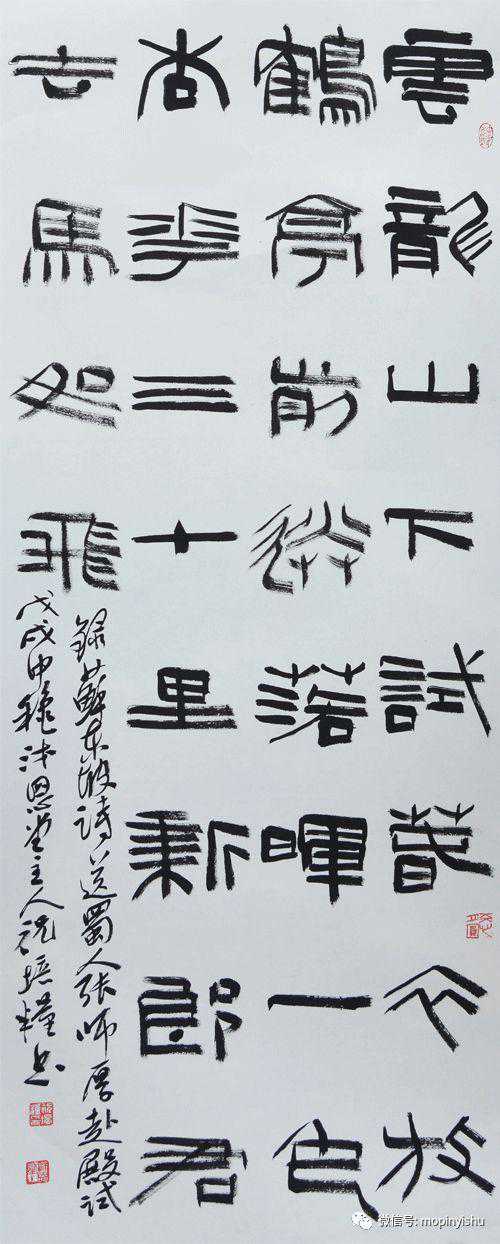 雲龍山下試春衣放
鶴亭前送落暉一色
杏花三十里新郎君
去馬如飛
錄蘇東坡詩送蜀人張師厚赴殿試
戊戌中穐沐恩堂主人祝培糧書
微信号: mopinyishu